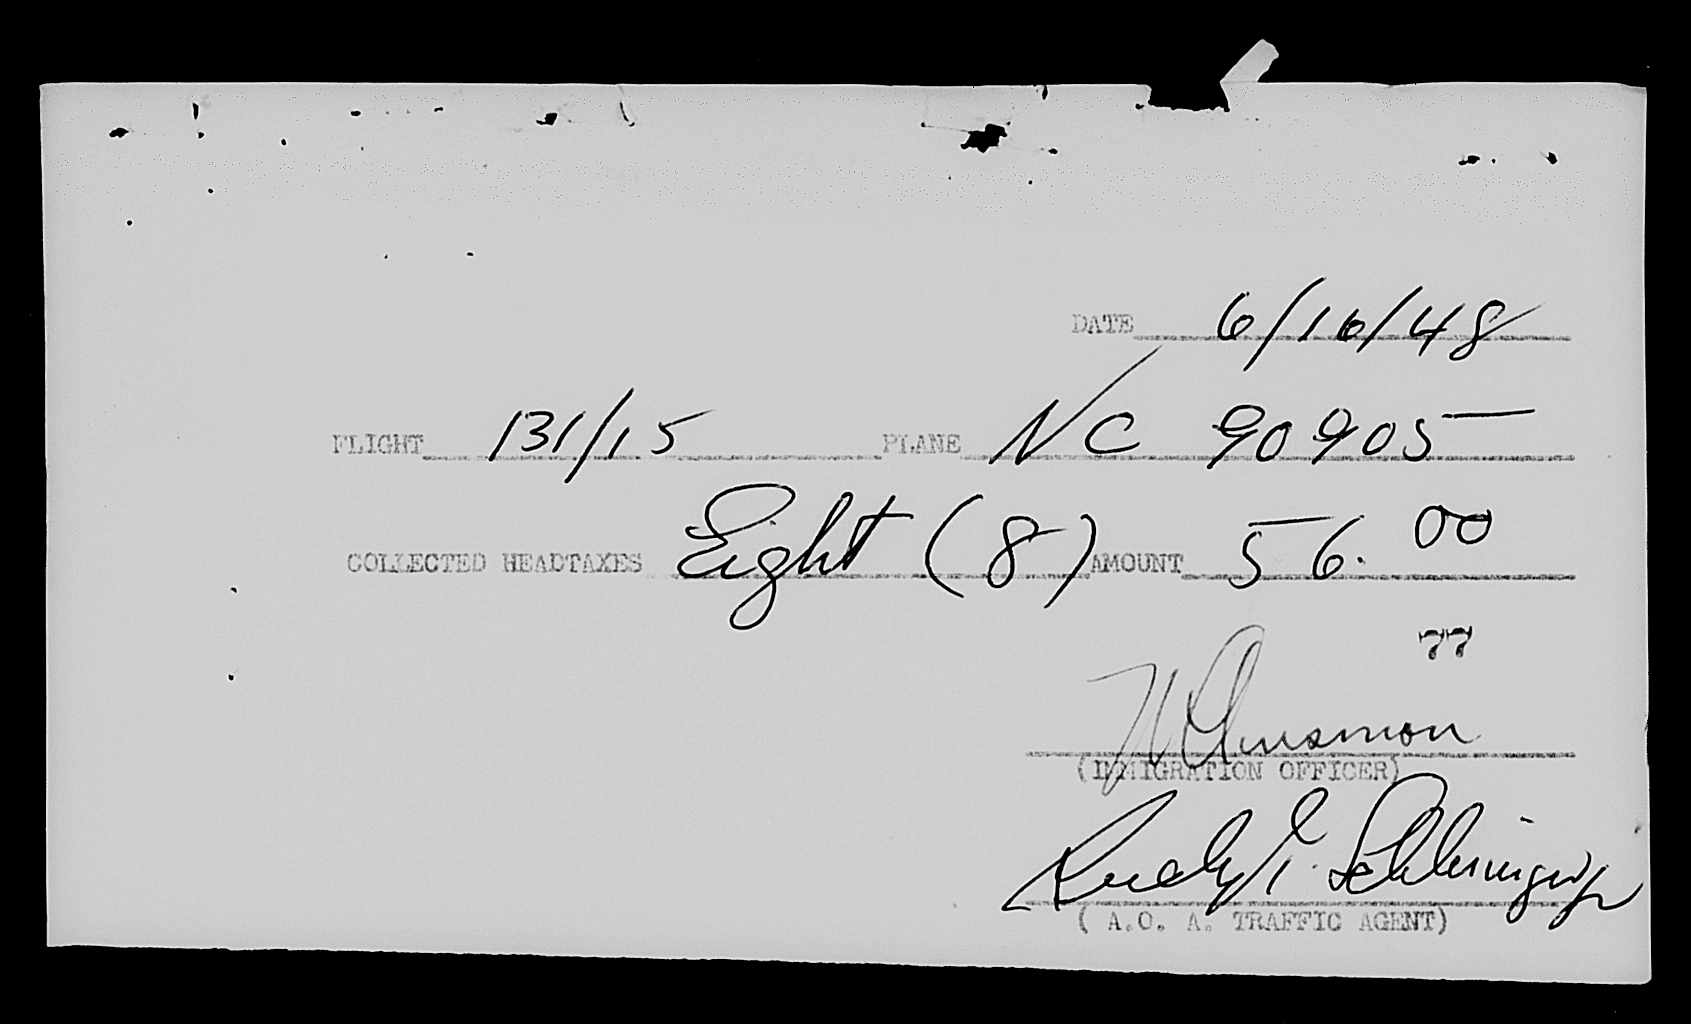 DATE 6/16/48
FLIGHT 131/15 PLANE NC 90905
COLLECTED HEADTAXES Eight (8) AMOUNT 56.00
77
(IMMIGRATION OFFICER)
Rudy E. Schlesinger Jr
( A.O. A. TRAFFIC AGENT)